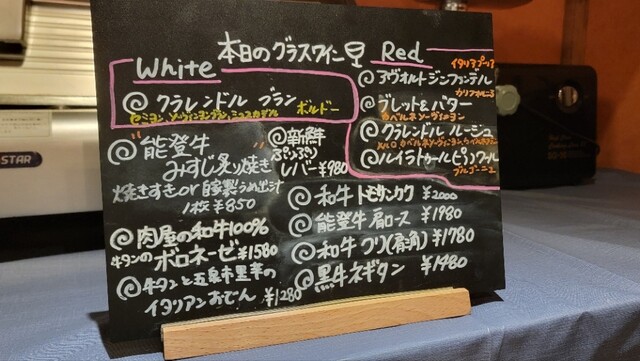 本日のグラスワイン
White
クラレンドル ブラン
セミヨン、ソーヴィニヨンブラン、ミュスカデル
ボルドー
Red
イタリア プーリア
3ヴォルト ジンファンデル
カリフォルニア
ブレット&バター
カベルネソーヴィニヨン
クラレンドル ルージュ
メルロ カベルネソーヴィニヨン、
ルイラトゥール ピノノワール
ブルゴーニュ
能登牛
みすじ炙り焼き
焼きすき or 自家製うめ出汁
1枚 ¥850
新鮮
ぷりっぷり
レバー ¥980
肉屋の和牛100%
牛タンの
ボロネーゼ ¥1580
牛タンと五泉市里芋の
イタリアンおでん ¥1280
和牛 トモサンカク ¥2000
能登牛 肩ロース ¥1980
和牛 クリ(肩三角) ¥1780
黒牛ネギタン ¥1980
STAR